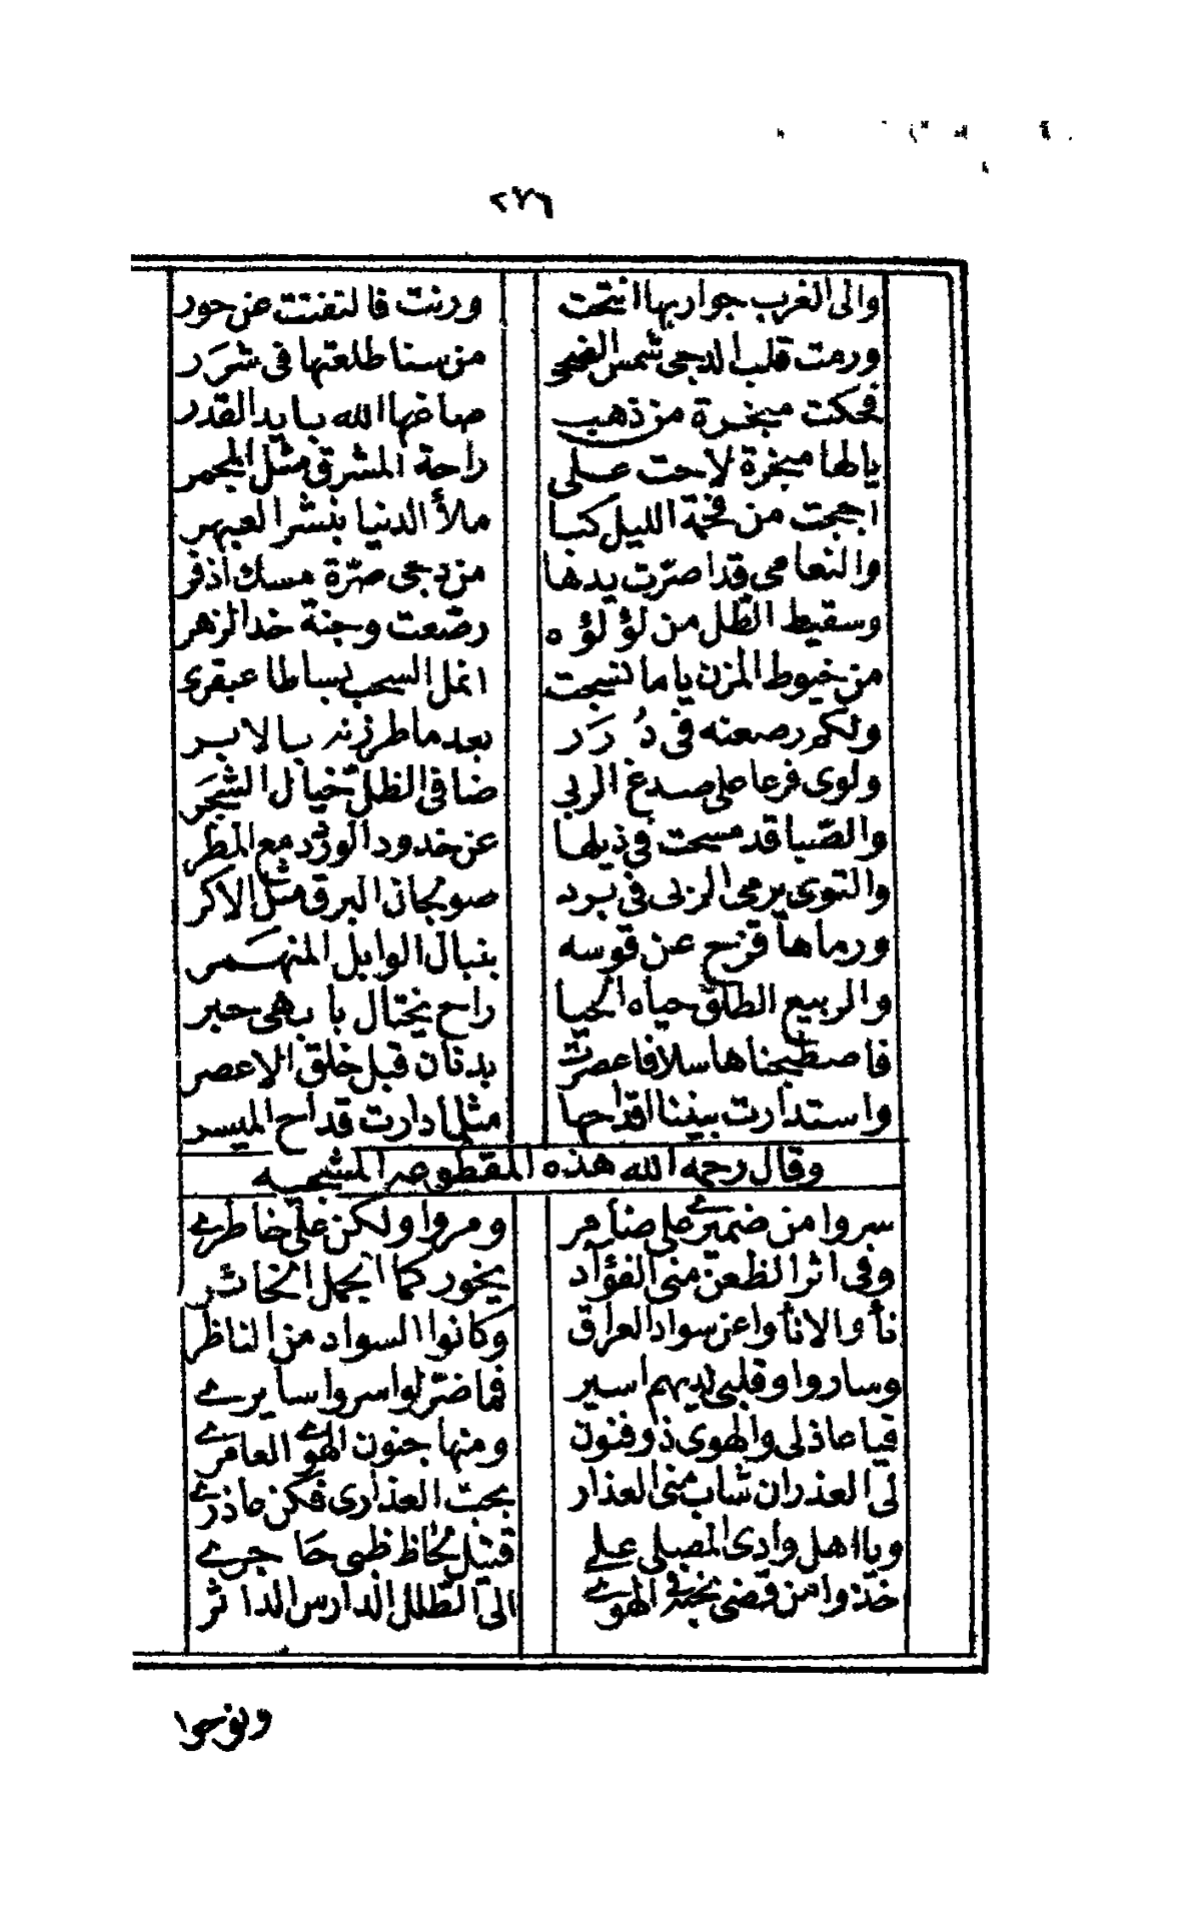 ٢٧٦
والى الغرب جواريها انتحت ورنت فالتفتت عن حور
ورمت قلب الدجى شمس الضحى من سنا طلعتها فى شرر
فحكت مبخرة من ذهب صاغها الله بايد القدر
يالها مبخرة لاحت على راحة المشرق مثل المجمر
اججت من فحمة الليل كبا ملأ الدنيا بنشر العبهر
والنعامى قد اصرّت يدها من دجى صرّة مسك اذفر
وسقيط الطّل من لؤلؤه رصّعت وجنة خد الزهر
من خيوط المزن ياما نسجت انمل السحب بساطا عبقرى
ولكم رصعنه فى دُرَر بعد ما طرزنه بالابر
ولوى فرعا على صدغ الربى ضافى الظلّ خيال الشجر
والصّبا قد مسحت فى ذيلها عن خدود الورد مع المطر
والتوى يرمى الربى فى برد صولجان البرق مثل الاكر
ورماها قزح عن قوسه بنبال الوابل المنهمر
والربيع الطلق حياه الحيا راح يختال بابهى حبر
فاصطبحناها سلافا عصرت بدنان قبل خلق الاعصر
واستدارت بيننا اقداحها مثلما دارت قداح الميسر
وقال رحمه الله هذه المقطوعه المشجيه
سروا من ضميرے على ضامر ومروا ولكن على خاطرے
وفى اثر الظعن منى الفؤاد يخور كما العجل الخائر
نأوا لا نأوا عن سواد العراق وكانوا السواد من الناظر
وساروا وقلبى لديهم اسير فما ضرّ لو اسروا سايرے
فيا عاذلى والهوى ذو فنون ومنها جنون الهوے العامرے
لى العذر ان شاب منى العذار بحب العذارى فكن عاذرے
ويا اهل وادى المصلى علے قتيل لحاظ ظبى حاجرے
خذوا من قضى نحبه فى الهوے الى الطّلل الدارس الداثر
ونوحوا